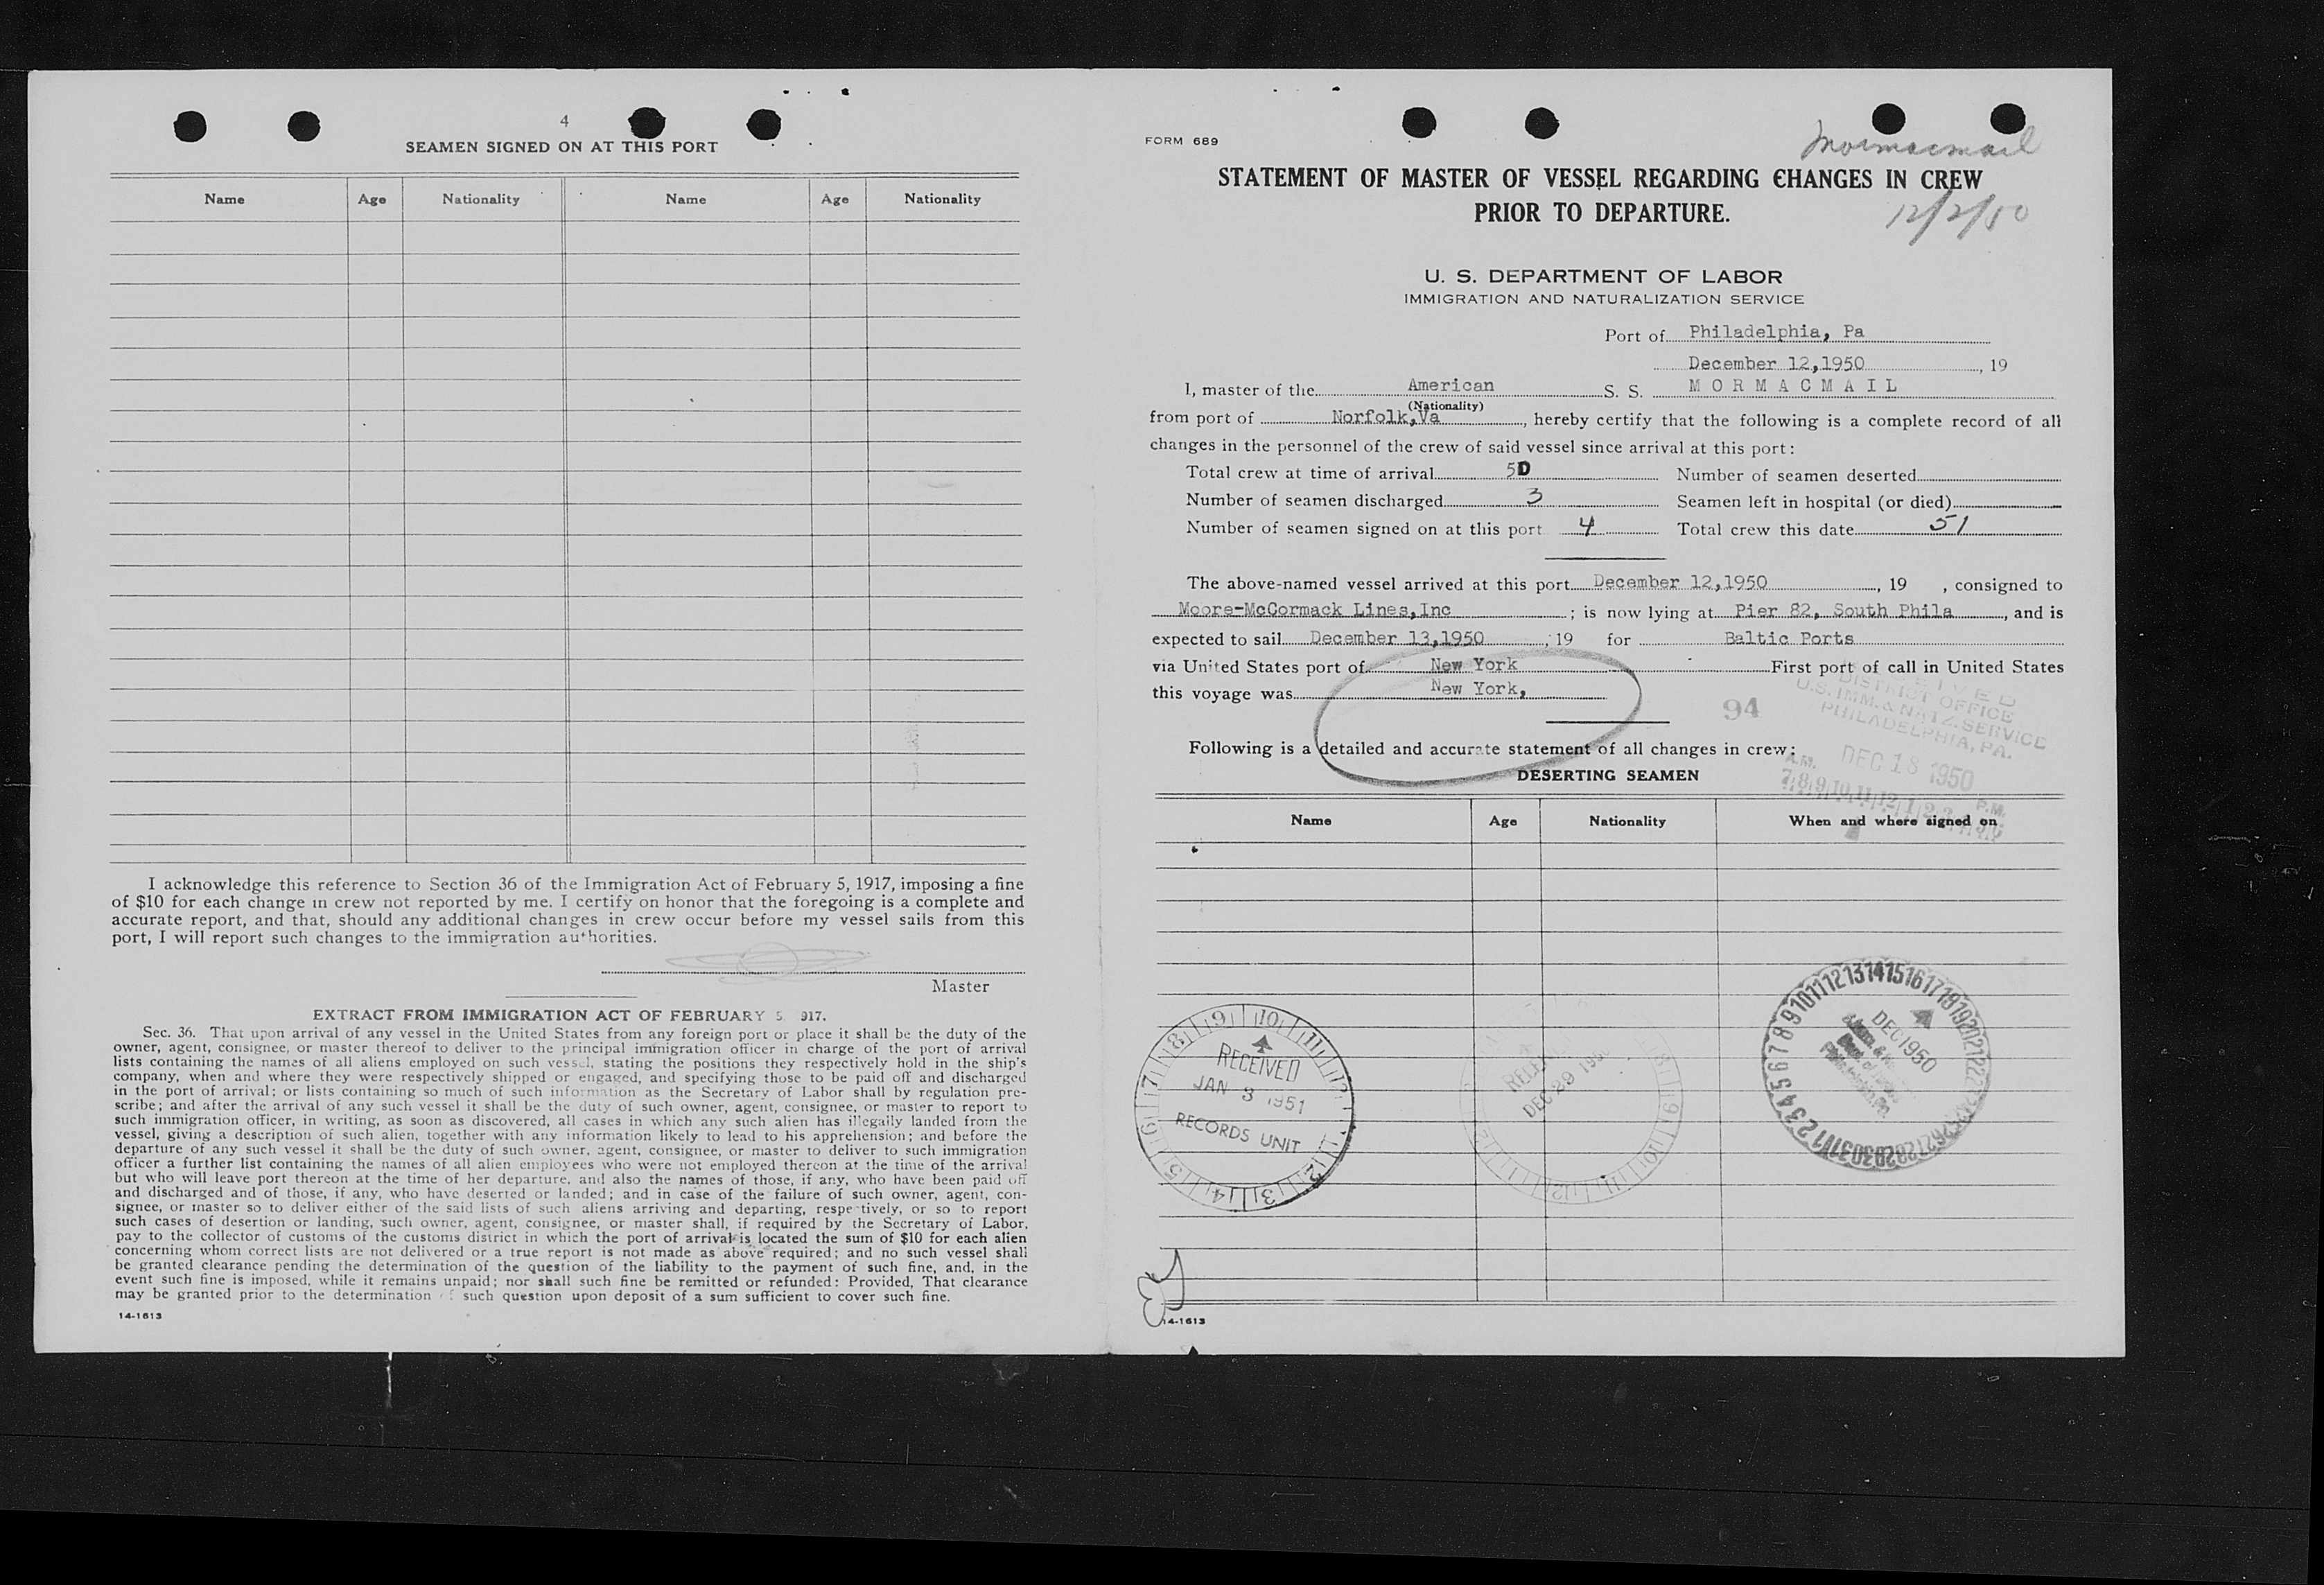 4
SEAMEN SIGNED ON AT THIS PORT
Name Age Nationality Name Age Nationality
I acknowledge this reference to Section 36 of the Immigration Act of February 5, 1917, imposing a fine
of $10 for each change in crew not reported by me. I certify on honor that the foregoing is a complete and
accurate report, and that, should any additional changes in crew occur before my vessel sails from this
port, I will report such changes to the immigration authorities.
Master
EXTRACT FROM IMMIGRATION ACT OF FEBRUARY 5 917.
Sec. 36. That upon arrival of any vessel in the United States from any foreign port or place it shall be the duty of the
owner, agent, consignee, or master thereof to deliver to the principal immigration officer in charge of the port of arrival
lists containing the names of all aliens employed on such vessel, stating the positions they respectively hold in the ship's
company, when and where they were respectively shipped or engaged, and specifying those to be paid off and discharged
in the port of arrival; or lists containing so much of such information as the Secretary of Labor shall by regulation pre-
scribe; and after the arrival of any such vessel it shall be the duty of such owner, agent, consignee, or master to report to
such immigration officer, in writing, as soon as discovered, all cases in which any such alien has illegally landed from the
vessel, giving a description of such alien, together with any information likely to lead to his apprehension; and before the
departure of any such vessel it shall be the duty of such owner, agent, consignee, or master to deliver to such immigration
officer a further list containing the names of all alien employees who were not employed thereon at the time of the arrival
but who will leave port thereon at the time of her departure, and also the names of those, if any, who have been paid off
and discharged and of those, if any, who have deserted or landed; and in case of the failure of such owner, agent, con-
signee, or master so to deliver either of the said lists of such aliens arriving and departing, respectively, or so to report
such cases of desertion or landing, such owner, agent, consignee, or master shall, if required by the Secretary of Labor,
pay to the collector of customs of the customs district in which the port of arrival is located the sum of $10 for each alien
concerning whom correct lists are not delivered or a true report is not made as above required; and no such vessel shall
be granted clearance pending the determination of the question of the liability to the payment of such fine, and, in the
event such fine is imposed, while it remains unpaid; nor shall such fine be remitted or refunded: Provided, That clearance
may be granted prior to the determination of such question upon deposit of a sum sufficient to cover such fine.
14-1613
FORM 689
Mormacmail
STATEMENT OF MASTER OF VESSEL REGARDING CHANGES IN CREW
PRIOR TO DEPARTURE.
12/2/50
U. S. DEPARTMENT OF LABOR
IMMIGRATION AND NATURALIZATION SERVICE
Port of Philadelphia, Pa
December 12,1950, 19
I, master of the American S. S. MORMACMAIL
(Nationality)
from port of Norfolk,Va, hereby certify that the following is a complete record of all
changes in the personnel of the crew of said vessel since arrival at this port:
Total crew at time of arrival 50 Number of seamen deserted
Number of seamen discharged 3 Seamen left in hospital (or died)
Number of seamen signed on at this port 4 Total crew this date 51
The above-named vessel arrived at this port December 12,1950, 19 , consigned to
Moore-McCormack Lines,Inc; is now lying at Pier 82, South Phila, and is
expected to sail December 13,1950, 19 for Baltic Ports
via United States port of New York First port of call in United States
this voyage was New York,
94
DISTRICT OFFICE
U.S. IMM. & NATZ. SERVICE
PHILADELPHIA, PA.
A.M. DEC 18 1950 P.M.
Following is a detailed and accurate statement of all changes in crew:
DESERTING SEAMEN
7 8 9 10 11 12 1 2 3 4 5 6
Name Age Nationality When and where signed on
RECEIVED
JAN 3 1951
RECORDS UNIT
DEC 29 195
DEC 1950
14-1613